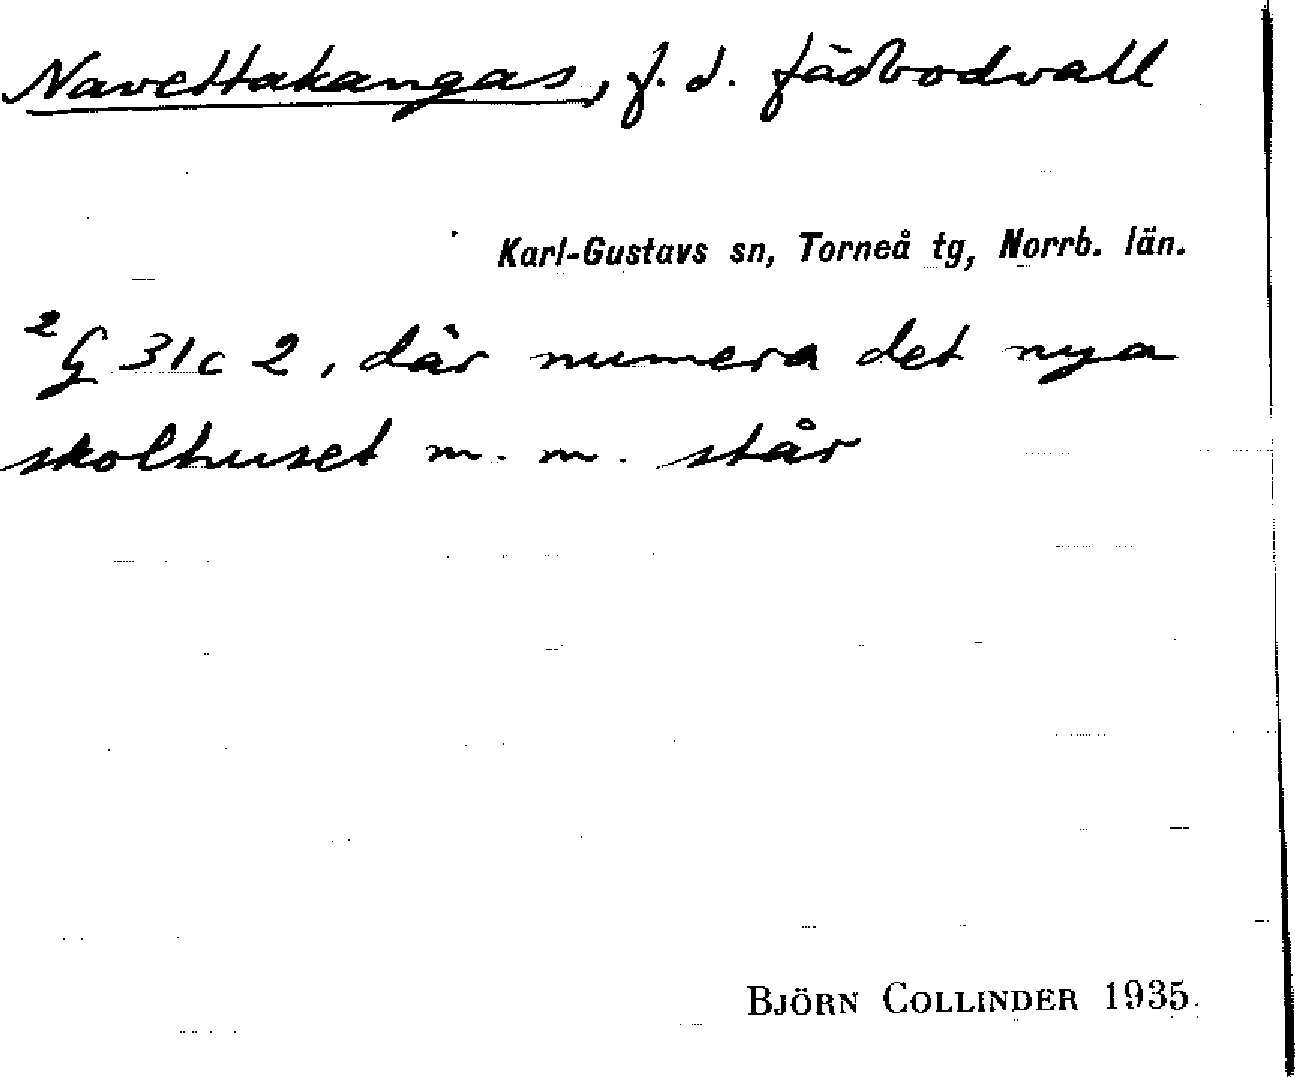 Navettakangas, f. d. fäbodvall
Karl-Gustavs sn, Torneå tg, Norrb. län.
²G 31c 2, där numera det nya
skolhuset m. m. står
BJÖRN COLLINDER 1935.